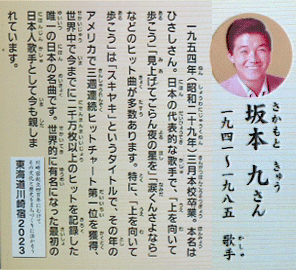 坂本 九さん
さかもと きゅう
一九四一〜一九八五 歌手
かしゅ
一九五四年(昭和二十九年)三月本校卒業。本名は
ひさしさん。日本の代表的な歌手で、「上を向いて
歩こう」「見上げてごらん夜の星を」「涙くんさよなら」
などのヒット曲が多数あります。特に、「上を向いて
歩こう」は「スキヤキ」というタイトルで、その年の
アメリカで三週連続ヒットチャート第一位を獲得、
世界中で今までに一千万枚以上のヒットを記録した
唯一の日本の名曲です。世界的に有名になった最初の
日本人歌手として今も親しま
れています。
東海道川崎宿2023